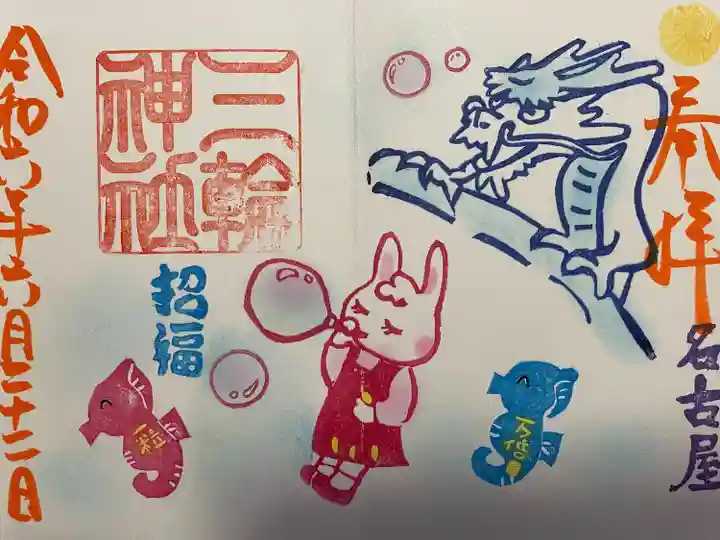 奉拝
名古屋
三輪
神社
招福
一粒
万倍
令和六年六月二十二日